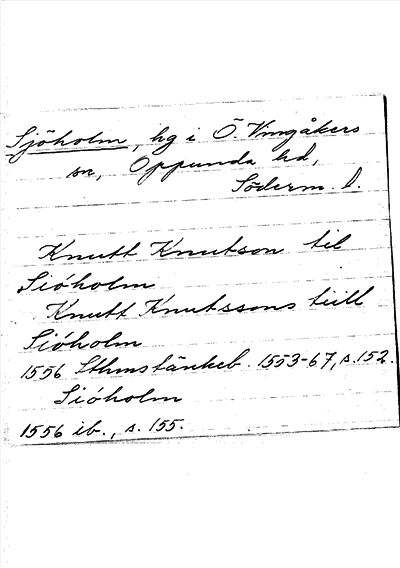 Sjöholm, hg i Ö. Vingåkers
sn, Oppunda hd,
Söderm. l.
Knutt Knutson til
Sióholm
Knutt Knutssons tiill
Sióholm
1556 Sthmstänkeb. 1553-67, s. 152.
Sióholm
1556 ib., s. 155.